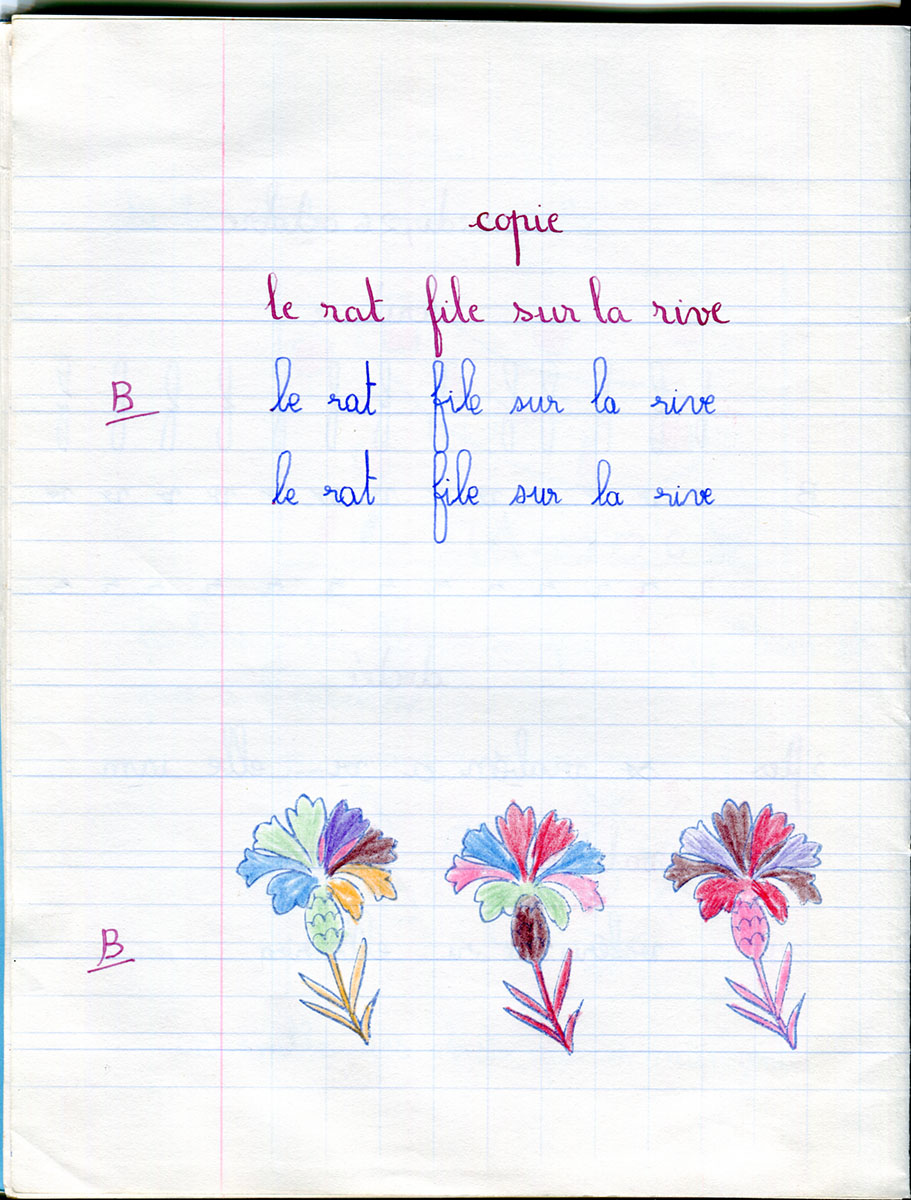 copie
le rat file sur la rive
B le rat file sur la rive
le rat file sur la rive
B